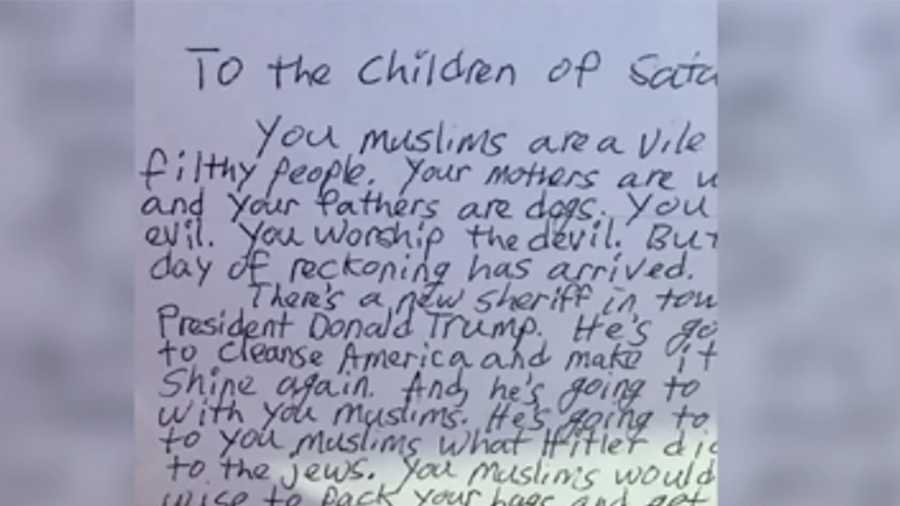 To the Children of Sata
You muslims are a vile
filthy people. Your mothers are w
and your fathers are dogs. You
evil. You worship the devil. But
day of reckoning has arrived.
There's a new sheriff in tow
President Donald Trump. He's go
to cleanse America and make it
shine again. And, he's going to
with you muslims. He's going to
to you muslims what Hitler di
to the jews. You muslims would
wise to pack your bags and get